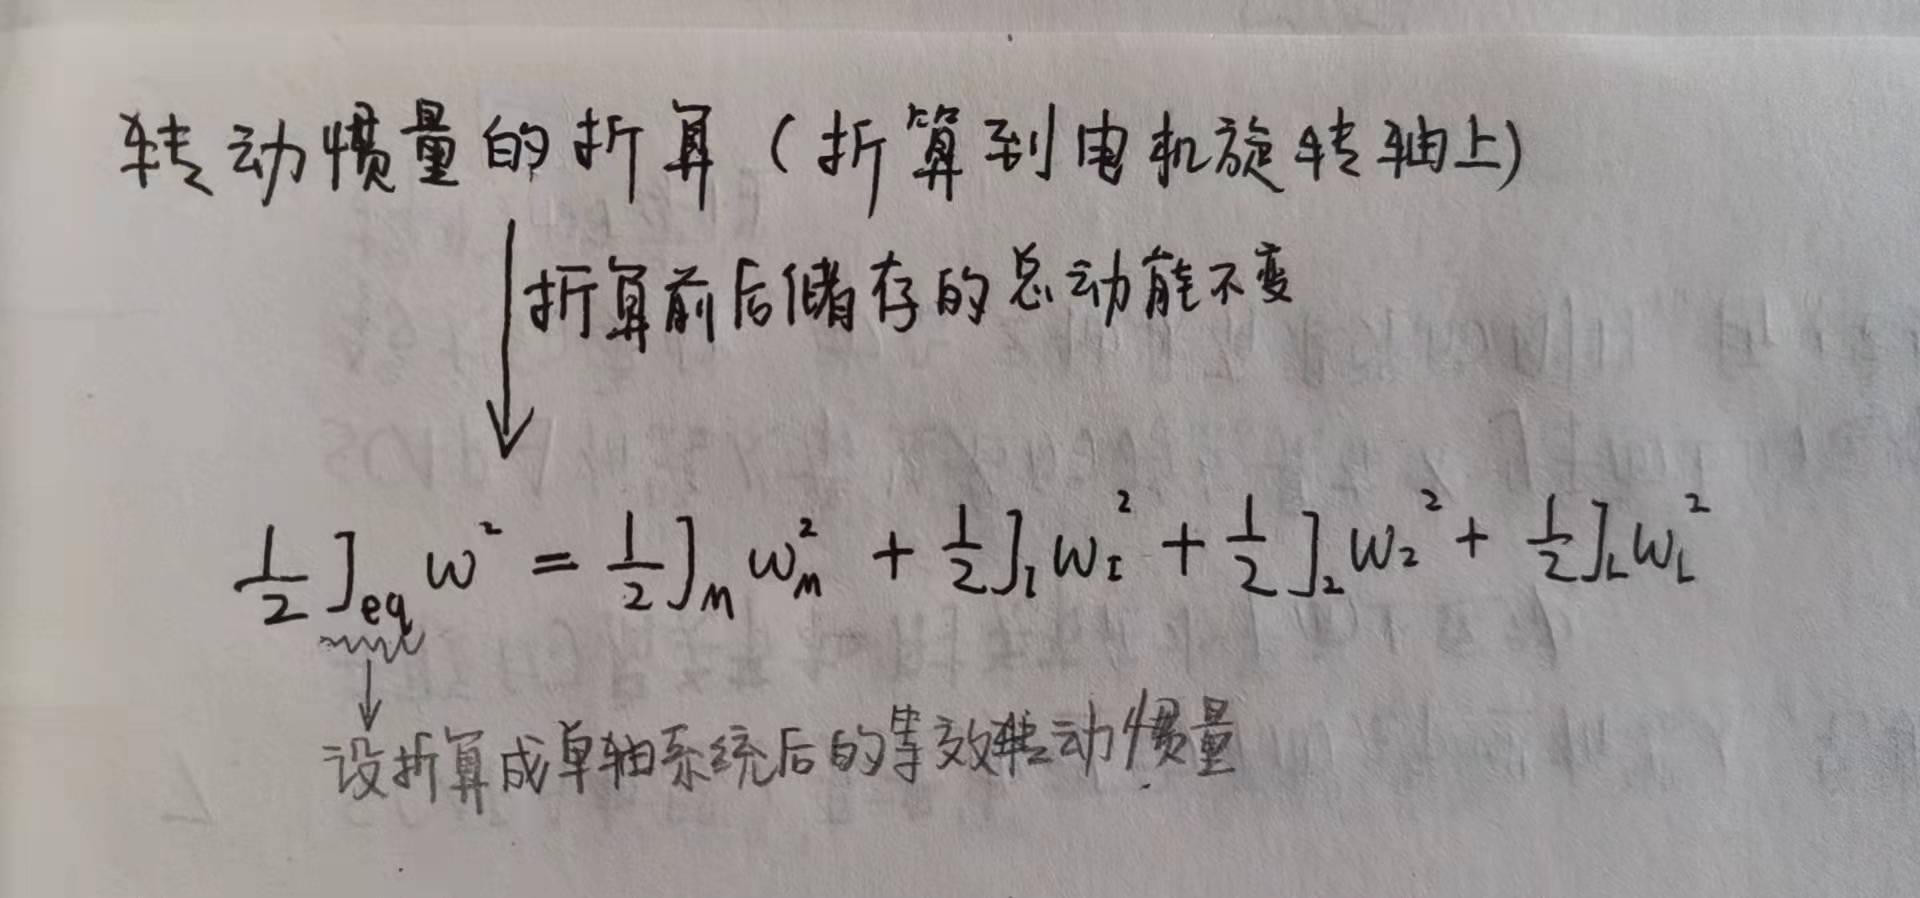 转动惯量的折算（折算到电机旋转轴上）
折算前后储存的总动能不变
½J_eq ω² = ½J_M ω_M² + ½J₁ω₁² + ½J₂ω₂² + ½J_L ω_L²
设折算成单轴系统后的等效转动惯量